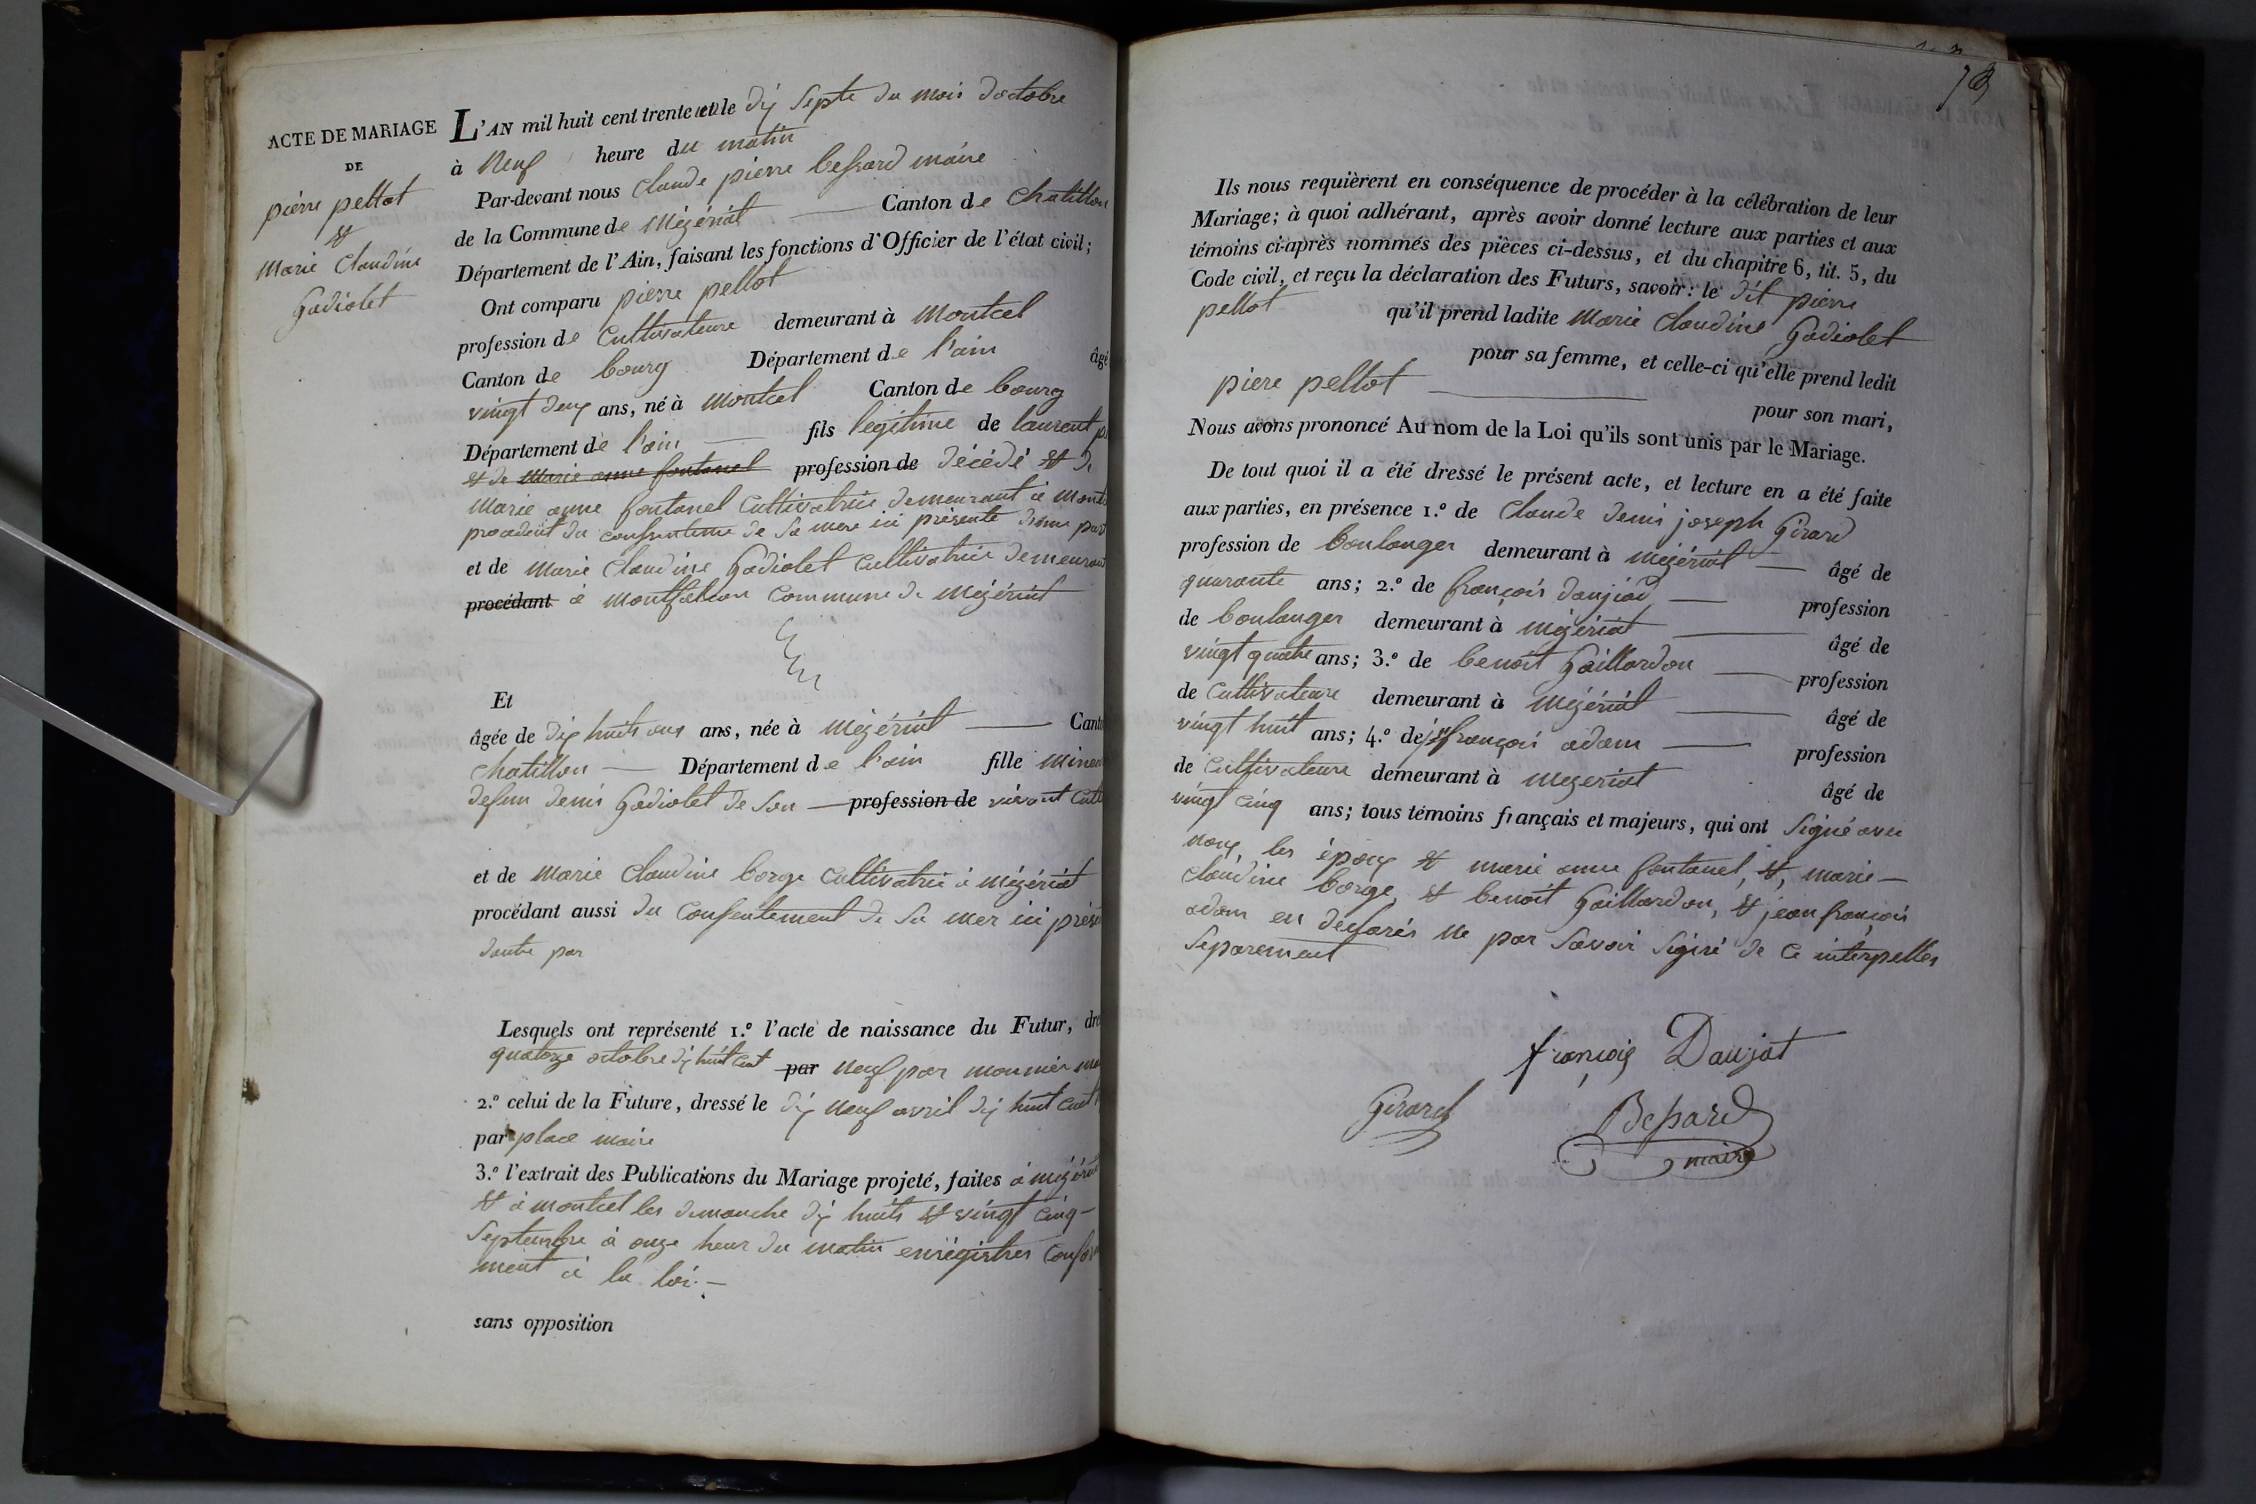 ACTE DE MARIAGE
DE
pierre pellot
et
Marie Claudine
Gadiolet
L'AN mil huit cent trente et le dix Septe du mois doctobre
à Neuf heure du matin
Par-devant nous Claude pierre bessard maire
de la Commune de Mézériat Canton de Chatillon
Département de l'Ain, faisant les fonctions d'Officier de l'état civil;
Ont comparu pierre pellot
profession de Cultivateure demeurant à Montcet
Canton de bourg Département de l'ain âgé
vingt deux ans, né à Montcet Canton de bourg
Département de l'ain fils legitime de laurent
et de Marie anne fontanel profession de décédé et de
Marie anne fontanel Cultivatrice demeurant à
procedent du consenteme de Sa mere ici présente dune part
et de Marie Claudine Gadiolet Cultivatrice demeurant
procédant à Commune de Mézériat
Et
âgée de dix huits ans ans, née à Mézériat Cant
Chatillon Département de l'ain fille mineu
defun denis Gadiolet de Son profession de vivant Cult
et de Marie Claudine borge Cultivatrice à Mézériat
procédant aussi du Consentement de Sa mer ici prése
dautre par
Lesquels ont représenté 1.º l'acte de naissance du Futur, dre
quatorze octobre dix huit cent par neuf par monnier
2.º celui de la Future, dressé le dix neuf avril dix huit cent
par place maire
3.º l'extrait des Publications du Mariage projeté, faites à mézéria
et à montcet les dimanche dix huits et vingt cinq
Septembre à onze heur du matin enrégistres Confor
ment à la loi.
sans opposition
73
Ils nous requièrent en conséquence de procéder à la célébration de leur
Mariage; à quoi adhérant, après avoir donné lecture aux parties et aux
témoins ci-après nommés des pièces ci-dessus, et du chapitre 6, tit. 5, du
Code civil, et reçu la déclaration des Futurs, savoir: le dit pierre
pellot qu'il prend ladite Marie Claudine Gadiolet
pour sa femme, et celle-ci qu'elle prend ledit
piere pellot pour son mari,
Nous avons prononcé Au nom de la Loi qu'ils sont unis par le Mariage.
De tout quoi il a été dressé le présent acte, et lecture en a été faite
aux parties, en présence 1.º de Claude denis joseph Girard
profession de boulanger demeurant à mézériat âgé de
quarante ans; 2.º de françois daujad profession
de boulanger demeurant à mézériat âgé de
vingt quatre ans; 3.º de benoit Gaillardon profession
de Cultivateure demeurant à Mézériat âgé de
vingt huit ans; 4.º de françois adam profession
de Cultivateure demeurant à mezeriat âgé de
vingt cinq ans; tous témoins français et majeurs, qui ont Signé avec
nous, les époux et marie anne fontanel, et, marie
claudine borge, et benoit Gaillardon, et jean françois
adam en déclarés ne par Savoir Signé de Ce interpelles
Séparement
françois Daujat
Girard
Bessard
maire